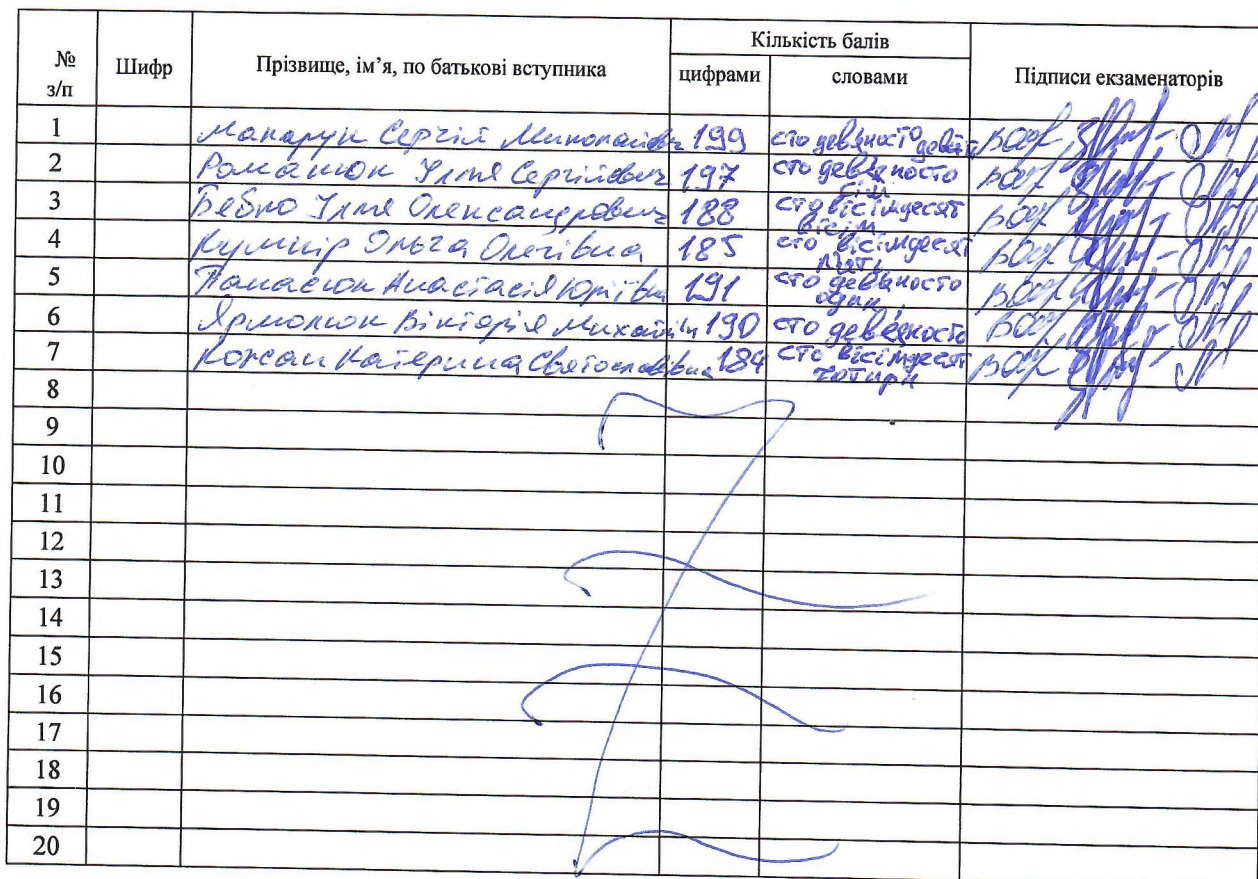 № з/п Шифр Прізвище, ім’я, по батькові вступника Кількість балів Підписи екзаменаторів
цифрами словами
1 Макарук Сергій Миколайович 199 сто дев'яносто дев'ять
2 Романюк Ілля Сергійович 197 сто дев'яносто сім
3 Ілля Олександрович 188 сто вісімдесят вісім
4 Кушнір Ольга Олегівна 185 сто вісімдесят п'ять
5 Панасюк Анастасія Юріївна 191 сто дев'яносто один
6 Ярмолюк Вікторія Михайлівна 190 сто дев'яносто
7 Катерина Святославівна 184 сто вісімдесят чотири
8
9
10
11
12
13
14
15
16
17
18
19
20